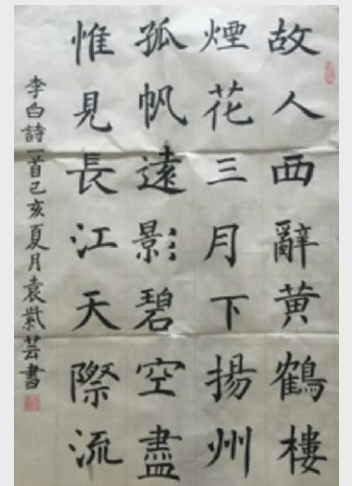 故人西辭黄鶴樓
煙花三月下揚州
孤帆遠影碧空盡
惟見長江天際流
李白詩一首己亥夏月袁紫芸書